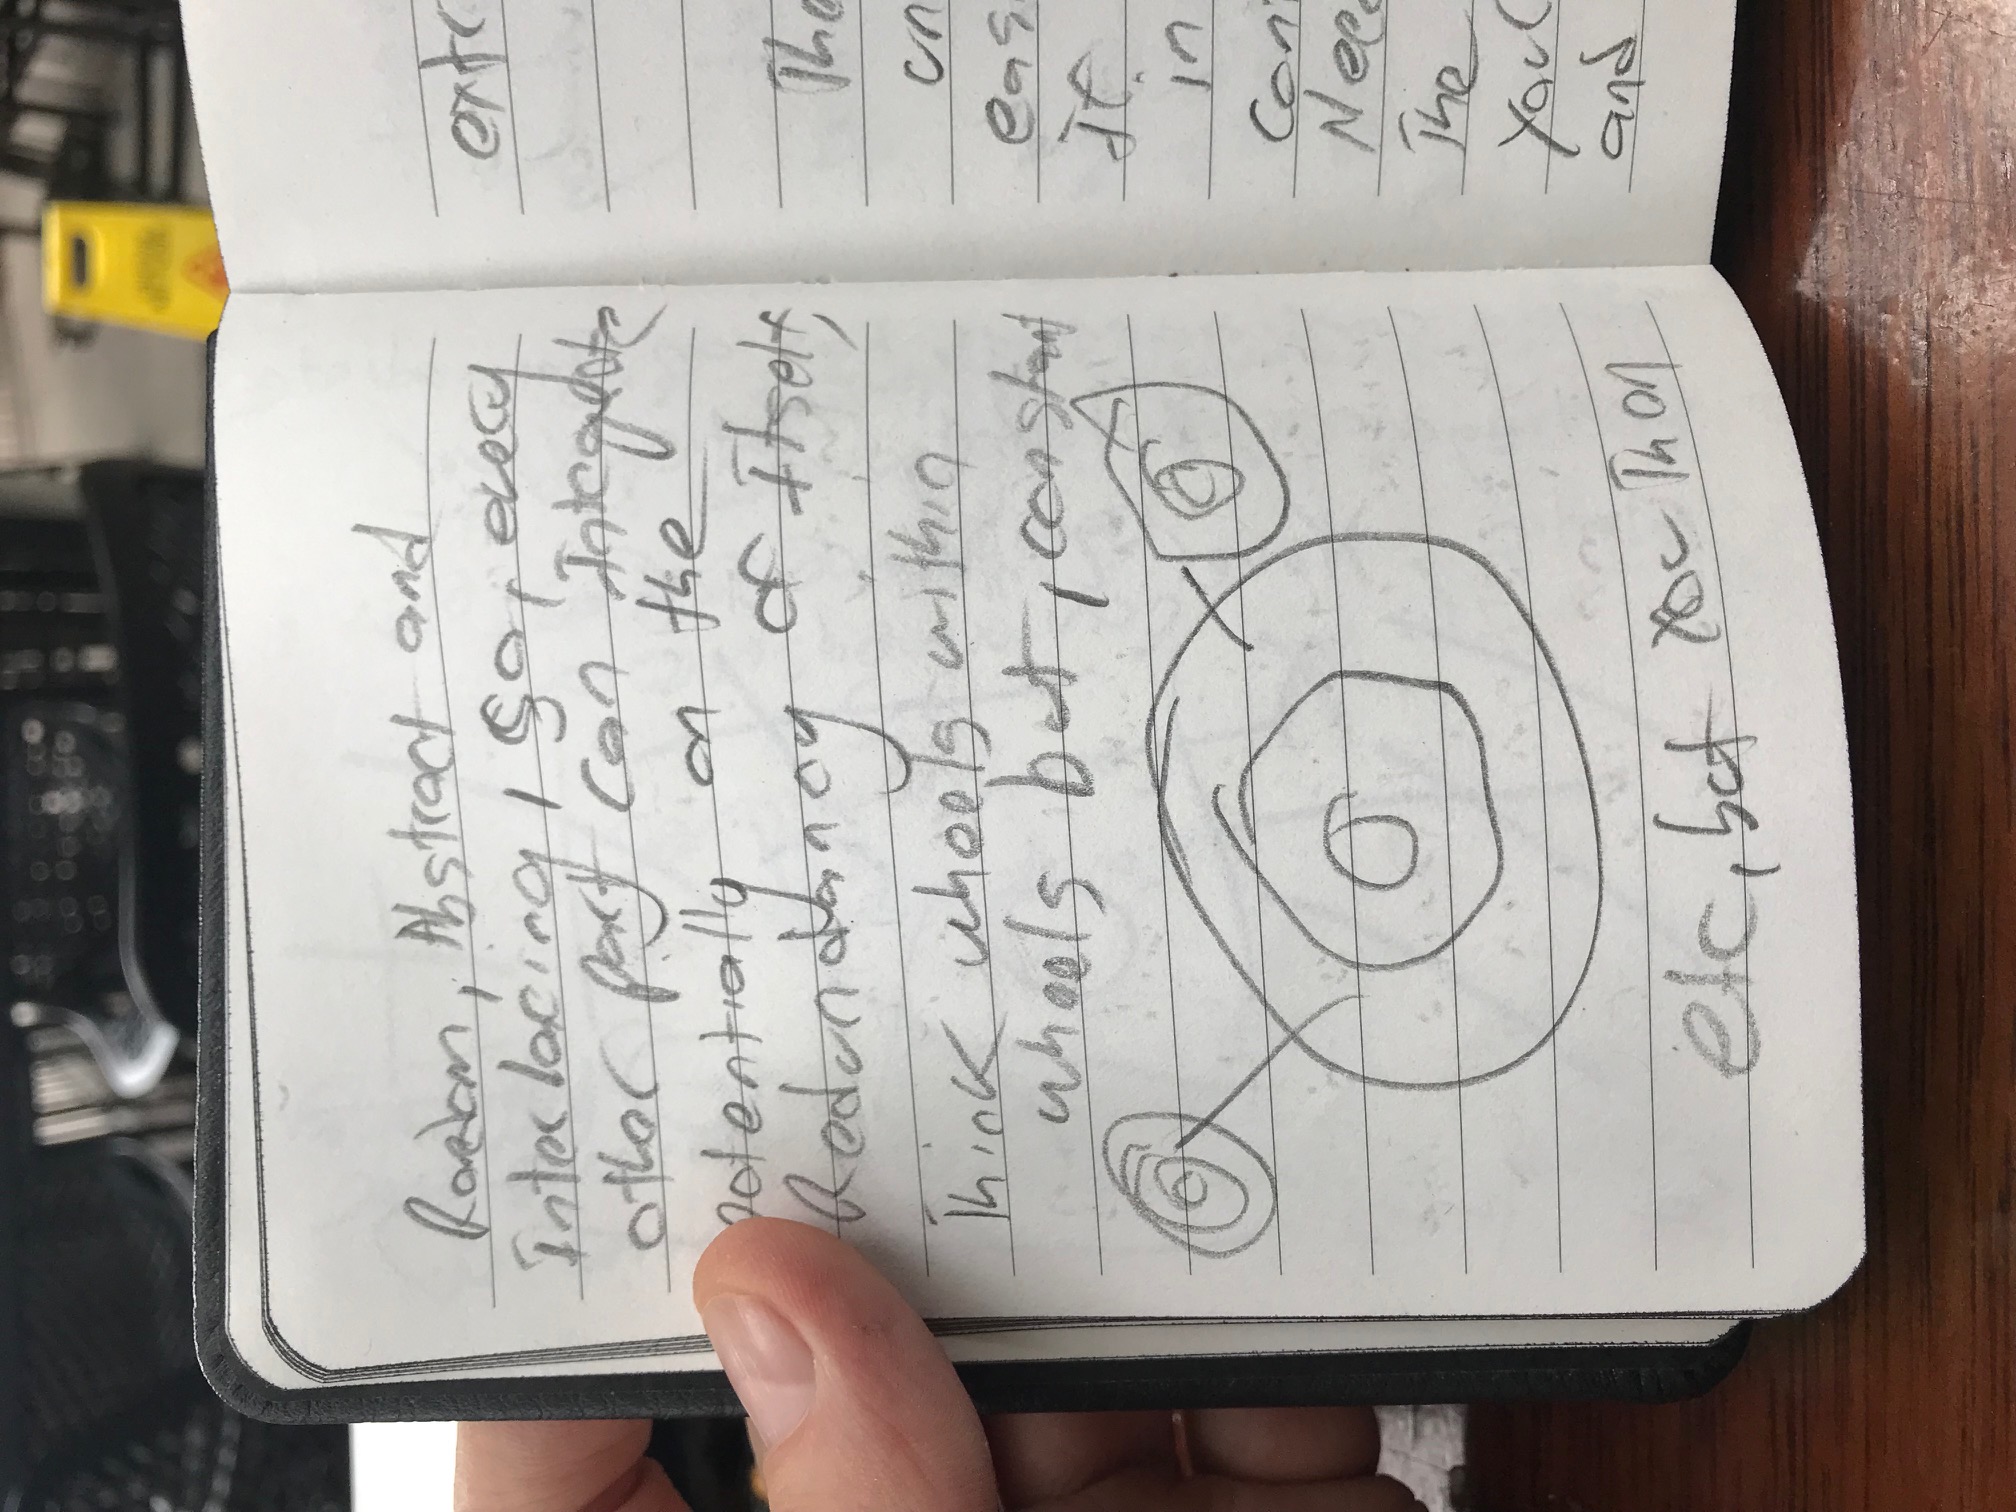 Random, Abstract and
Interlacing, So, every
other part can Intergrate
potentially on the
Redundancy of itself,
Think wheels within
wheels but, constant
etc, but you Then
exte
The
un
eas
It
in
Con
Nee
The
Your
and